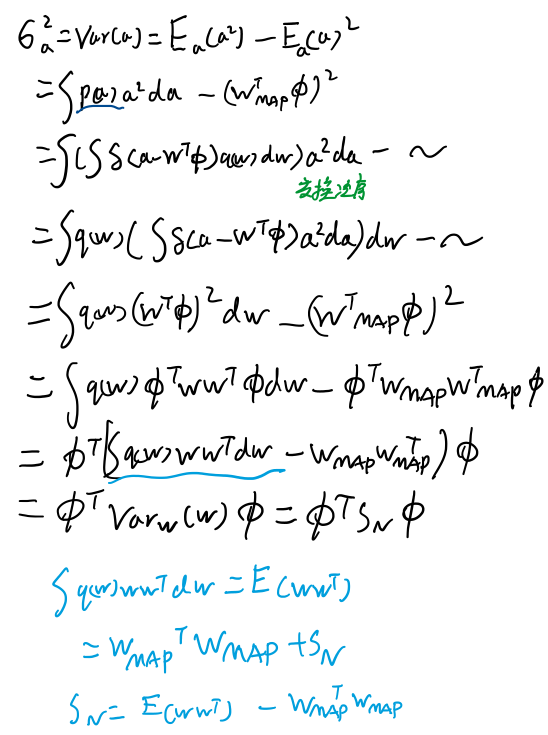 σ_a^2 = Var(a) = E_a(a^2) - E_a(a)^2
= ∫ p(a) a^2 da - (w_MAP^T ϕ)^2
= ∫ (∫ δ(a - w^T ϕ) q(w) dw) a^2 da - ～
交换次序
= ∫ q(w) (∫ δ(a - w^T ϕ) a^2 da) dw - ～
= ∫ q(w) (w^T ϕ)^2 dw - (w_MAP^T ϕ)^2
= ∫ q(w) ϕ^T w w^T ϕ dw - ϕ^T w_MAP w_MAP^T ϕ
= ϕ^T [∫ q(w) w w^T dw - w_MAP w_MAP^T) ϕ
= ϕ^T Var_w(w) ϕ = ϕ^T S_N ϕ
∫ q(w) w w^T dw = E(w w^T)
= w_MAP^T w_MAP + S_N
S_N = E(w w^T) - w_MAP^T w_MAP